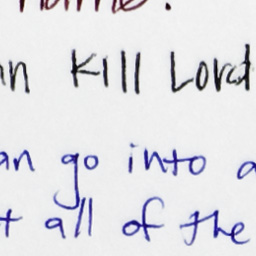 name.
n Kill Lord
an go into a
t all of the